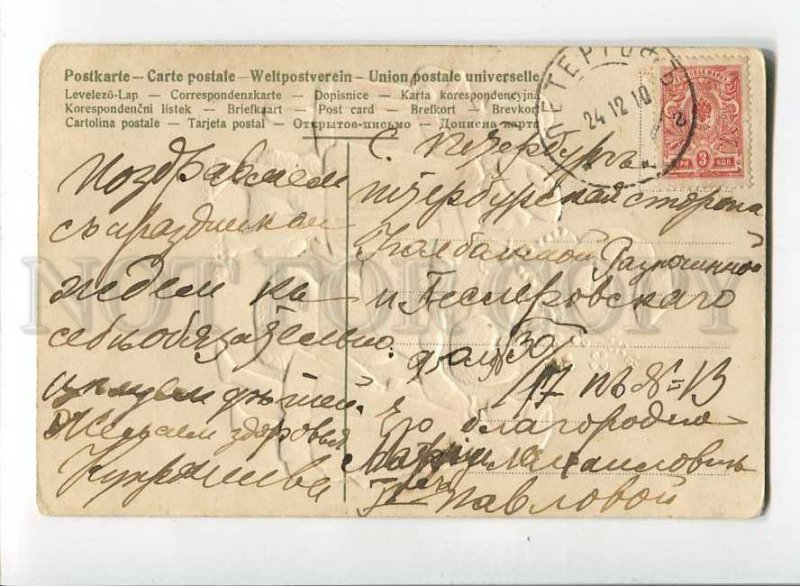 Postkarte – Carte postale – Weltpostverein – Union postale universelle
Levelező-Lap – Correspondenzkarte – Dopisnice – Karta korespondencyjna
Korespondenční listek – Briefkaart – Post card – Brefkort – Brevkort
Cartolina postale – Tarjeta postal – Открытое-письмо – Дописна карта
ПЕТЕРГОФЪ
24 12 10
3 КОП
Поздравляем
съ праздником
ждем къ
себѣ обязательно.
цѣлуем дѣтей.
Желаем здоровья
С. Петербургъ
петербурская сторона
и Геслеровскаго
30
17 кв № 13
Его благородию
Павловой
NOT FOR COPY